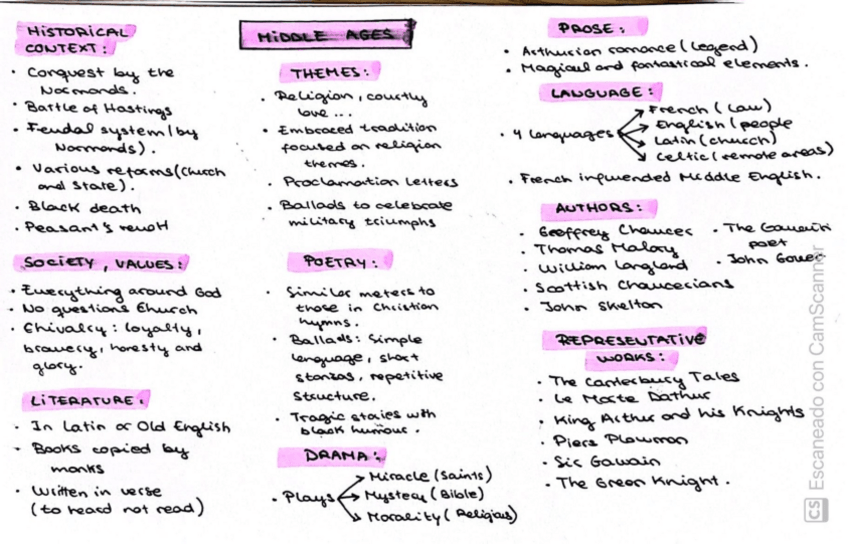 MIDDLE AGES
HISTORICAL
CONTEXT:
· Conquest by the
Normonds.
· Battle of Hastings
· Feudal system (by
Normonds).
· Various reforms (Church
and State).
· Black death
· Peasant's revolt
SOCIETY, VALUES:
· Everything around God
· No questions Church
· Chivalry: loyalty,
bravery, honesty and
glory.
LITERATURE:
· In Latin or Old English
· Books copied by
monks
· Written in verse
(to heard not read)
THEMES:
· Religion, courtly
love...
· Embraced tradition
focused on religion
themes.
· Proclamation letters
· Ballads to celebrate
military triumphs
POETRY:
· Similar meters to
those in Christian
hymns.
· Ballads: Simple
language, short
stanzas, repetitive
structure.
· Tragic stories with
black humour.
DRAMA:
· Plays
Miracle (Saints)
Mystery (Bible)
Morality (Religious)
PROSE:
· Arthurian romance (Legend)
· Magical and fantastical elements.
LANGUAGE:
· 4 languages
French (Law)
English (people
Latin (church)
Celtic (remote areas)
· French influended Middle English.
AUTHORS:
· Geoffrey Chaucer
· Thomas Malory
· William Langland
· Scottish Chaucerians
· John Skelton
· The Gawain
poet
· John Gower
REPRESENTATIVE
WORKS:
· The Canterbury Tales
· Le Morte Dathur
· King Arthur and his Knights
· Piers Plowman
· Sir Gawain
· The Green Knight.
CS Escaneado con CamScanner